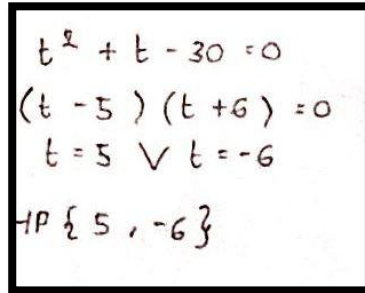 t² + t - 30 = 0
(t - 5) (t + 6) = 0
t = 5 ∨ t = -6
HP { 5 , -6 }